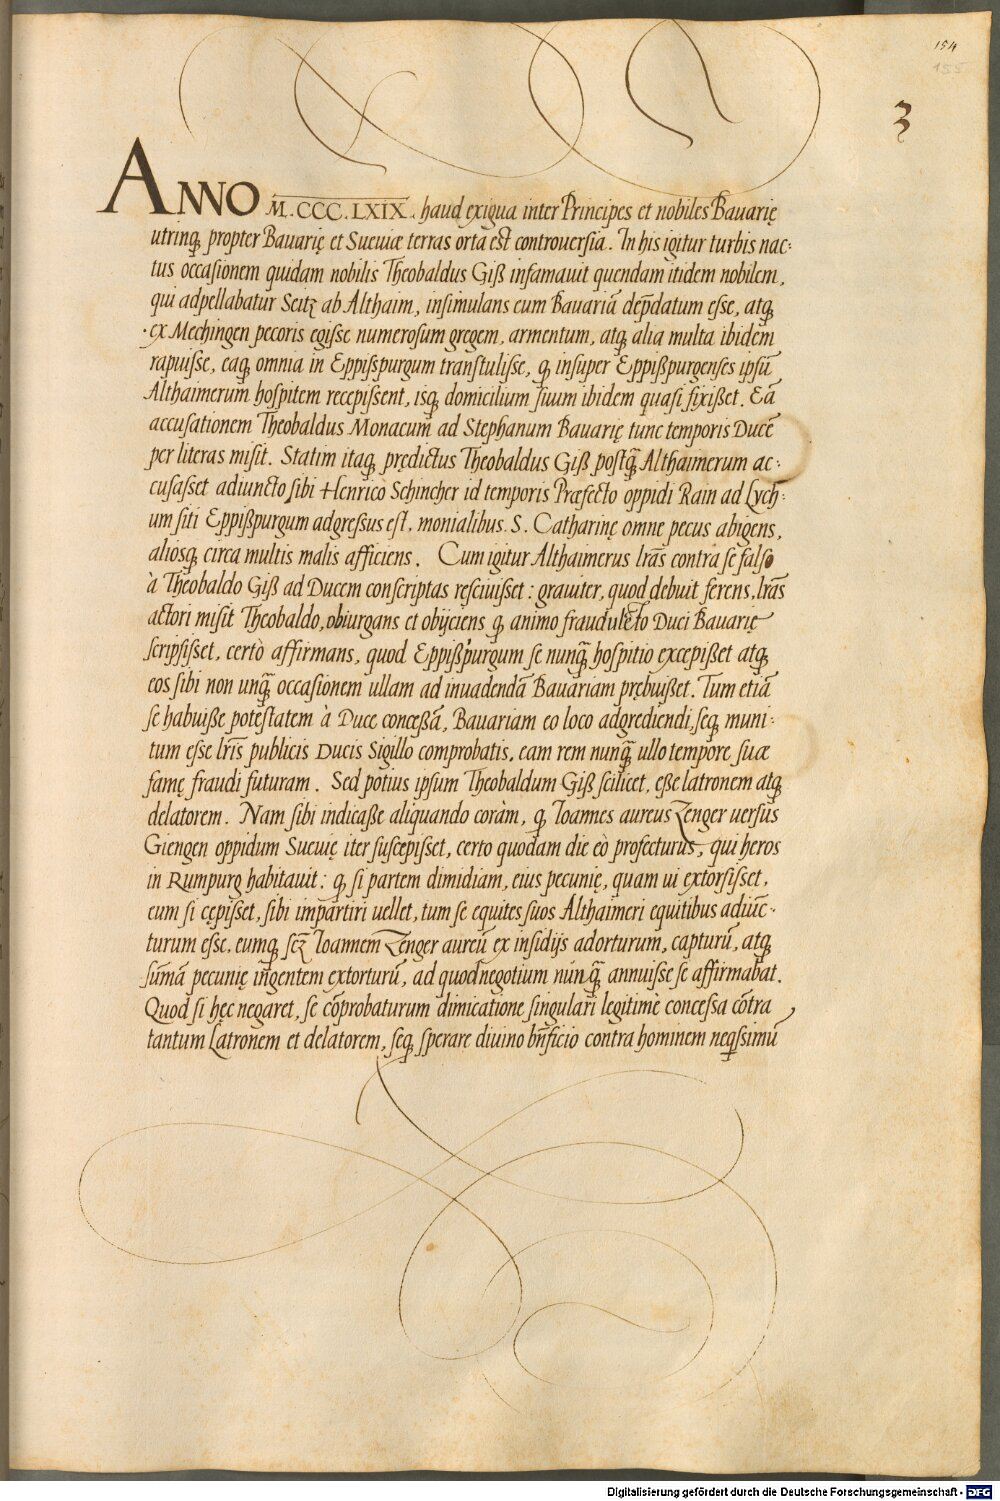 154
155
3
ANNO M.CCC.LXIX. haud exigua inter Principes et nobiles Bauarię
utrinq́ꝫ propter Bauarię et Sueuiæ terras orta est controuersia. In his igitur turbis nac:
tus occasionem quidam nobilis Theobaldus Giß infamauit quendam itidem nobilem,
qui adpellabatur Seitz ab Althaim, insimulans eum Bauariā dep̄datum esse, atqꝫ
ex Mechingen pecoris egisse numerosum gregem, armentum, atqꝫ alia multa ibidem
rapuisse, eaqꝫ omnia in Eppisspurgum transtulisse, qꝫ insuper Eppißpurgenses ipsū
Althaimerum hospitem recepissent, isqꝫ domicilium suum ibidem quasi fixißet. Eā
accusationem Theobaldus Monacum ad Stephanum Bauarię tunc temporis Ducē
per literas misit. Statim itaqꝫ prędictus Theobaldus Giß postq̄ Althaimerum ac:
cusasset adiuncto sibi Henrico Schincher id temporis Præfecto oppidi Rain ad Lych:
um siti Eppißpurgum adgreßus est, monialibus S. Catharinę omne pecus abigens,
aliosqꝫ circa multis malis afficiens. Cum igitur Althaimerus lrās contra se falso
à Theobaldo Giß ad Ducem conscriptas resciuisset: grauiter, quod debuit ferens, lrās
actori misit Theobaldo, obiurgans et obijciens qꝫ animo fraudulēto Duci Bauarię
scripsisset, certò affirmans, quod Eppißpurgum se nunq̄ hospitio excepißet atqꝫ
eos sibi non unq̄ occasionem ullam ad inuadendā Bauariam prębuißet. Tum etiā
se habuiße potestatem à Duce conceßā, Bauariam eo loco adgrediendi, seqꝫ muni:
tum esse lrīs publicis Ducis Sigillo comprobatis, eam rem nunq̄ ullo tempore suæ
famę fraudi futuram. Sed potius ipsum Theobaldum Giß scilicet, eße latronem atqꝫ
delatorem. Nam sibi indicaße aliquando coràm, qꝫ Ioannes aureus Zenger uersus
Giengen oppidum Sueuię iter suscepisset, certo quodam die eò profecturus, qui heros
in Rumpurg habitauit: qꝫ si partem dimidiam, eius pecunię, quam ui extorsisset,
eum si cępisset, sibi impartiri uellet, tum se equites suos Althaimeri equitibus adiūc:
turum esse, eumqꝫ scꝫ Ioannem Zenger aureū ex insidijs adorturum, capturū, atqꝫ
sūmā pecunię ingentem extorturū, ad quod negotium nunq̄ annuisse se affirmabat.
Quod si hęc negaret, se cōprobaturum dimicatione singulari legitimè concessa cōtra
tantum Latronem et delatorem, seqꝫ sperare diuino bn̄ficio contra hominem neqꝫssimū
Digitalisierung gefördert durch die Deutsche Forschungsgemeinschaft - DFG